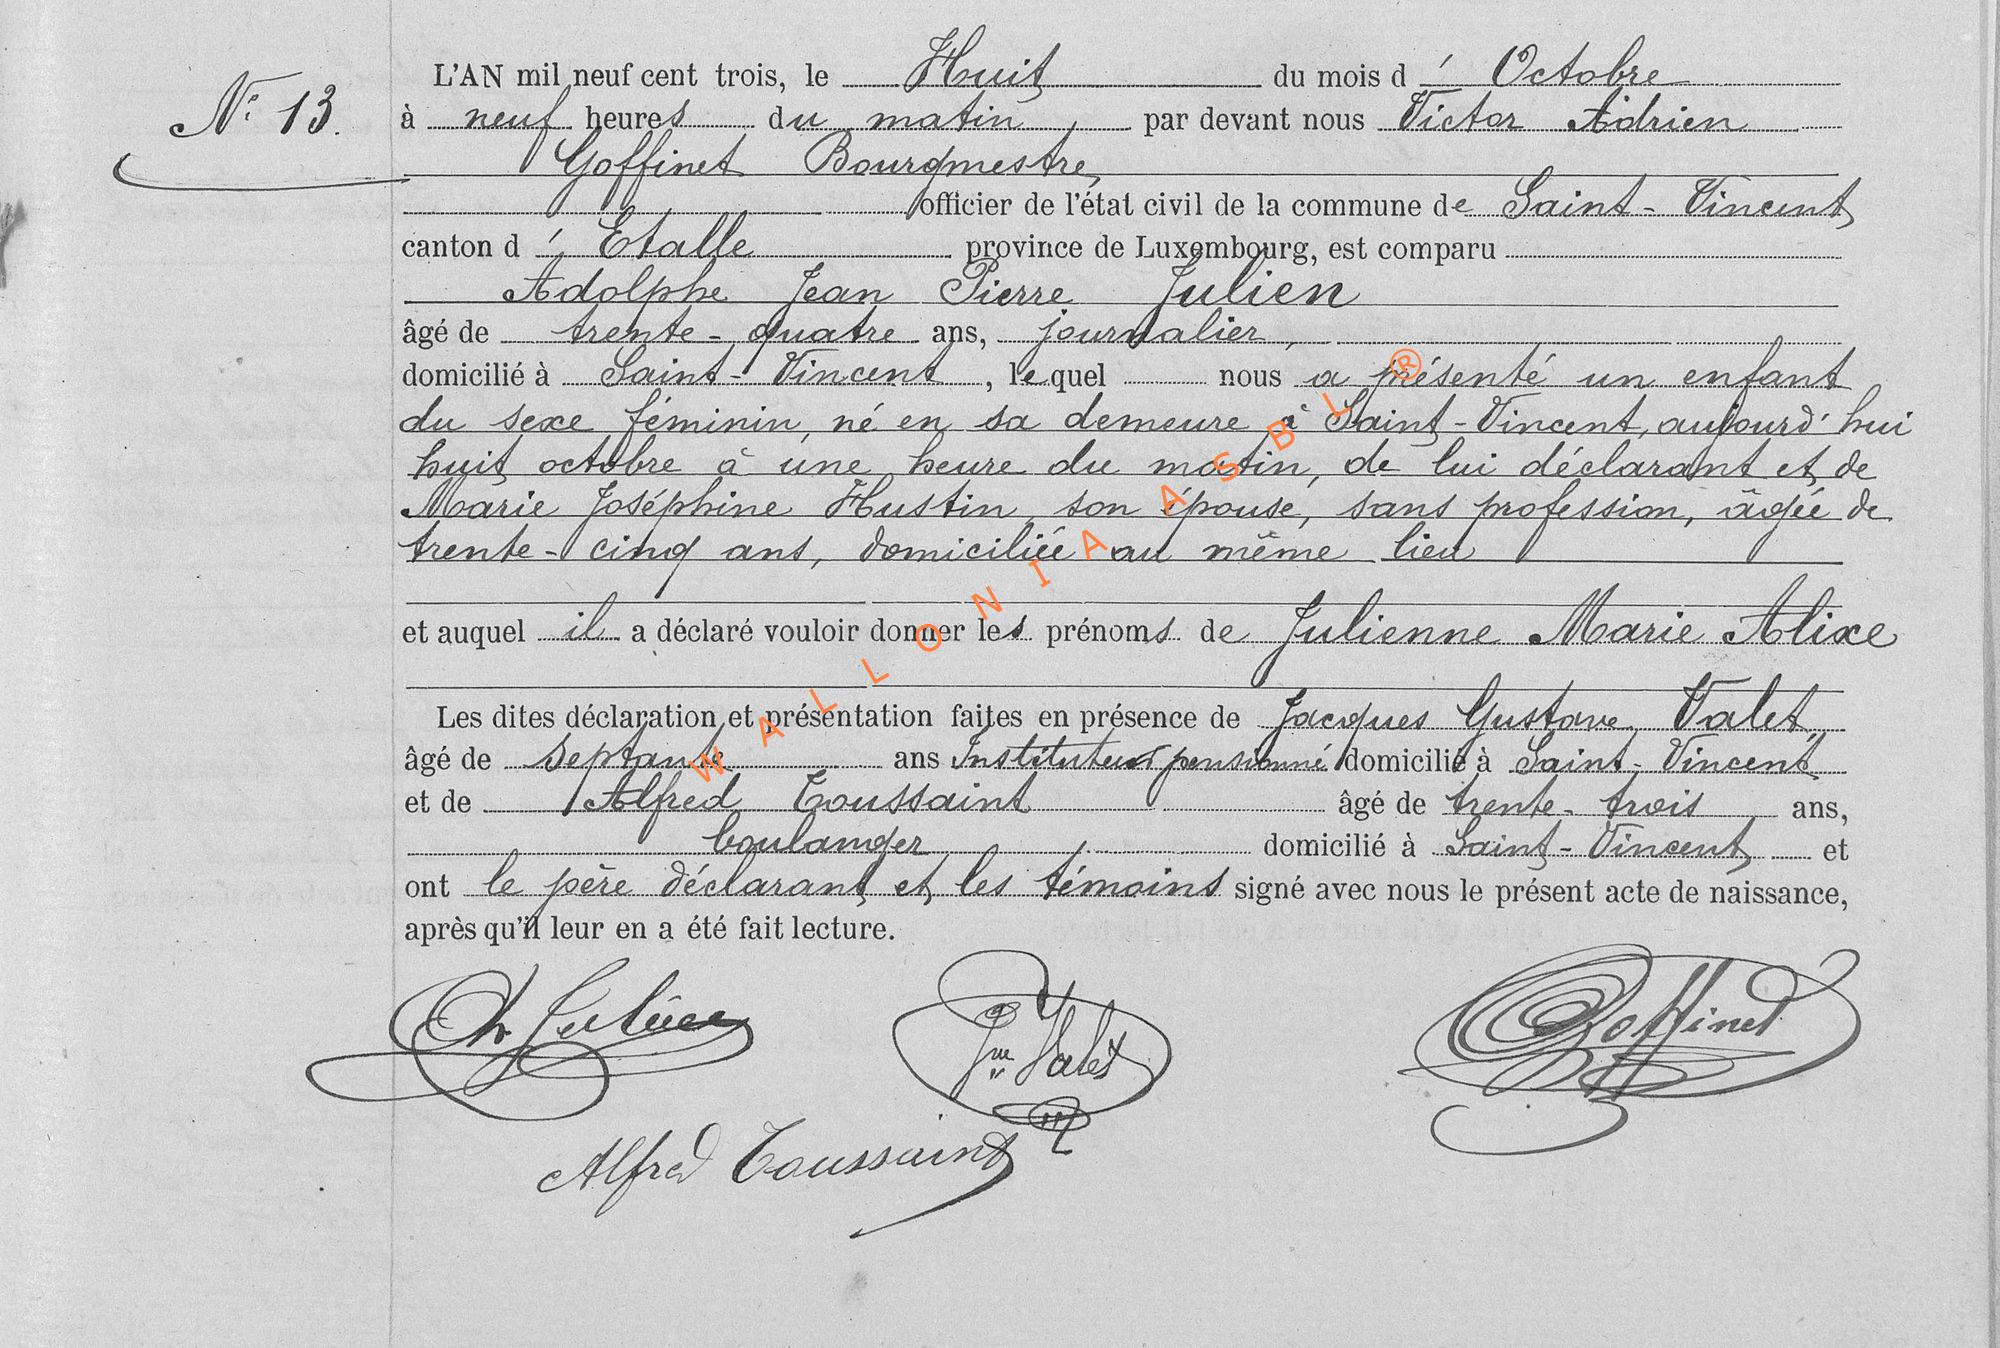 N° 13.
L'AN mil neuf cent trois, le Huit du mois d' Octobre
à neuf heures du matin, par devant nous Victor Adrien
Goffinet Bourgmestre,
officier de l'état civil de la commune de Saint-Vincent,
canton d' Etalle province de Luxembourg, est comparu
Adolphe Jean Pierre Julien
âgé de trente-quatre ans, journalier,
domicilié à Saint-Vincent, lequel nous a présenté un enfant
du sexe féminin, né en sa demeure à Saint-Vincent, aujourd'hui
huit octobre à une heure du matin, de lui déclarant et de
Marie Joséphine Hustin, son épouse, sans profession, âgée de
trente-cinq ans, domiciliée au même lieu
et auquel il a déclaré vouloir donner les prénoms de Julienne Marie Alixe
Les dites déclaration et présentation faites en présence de Jacques Gustave Valet,
âgé de septante ans Instituteur pensionné domicilié à Saint-Vincent
et de Alfred Toussaint âgé de trente-trois ans,
boulanger domicilié à Saint-Vincent, et
ont le père déclarant et les témoins signé avec nous le présent acte de naissance,
après qu'il leur en a été fait lecture.
Valet Goffinet
Alfred Toussaint
WALLONIA ASBL ®